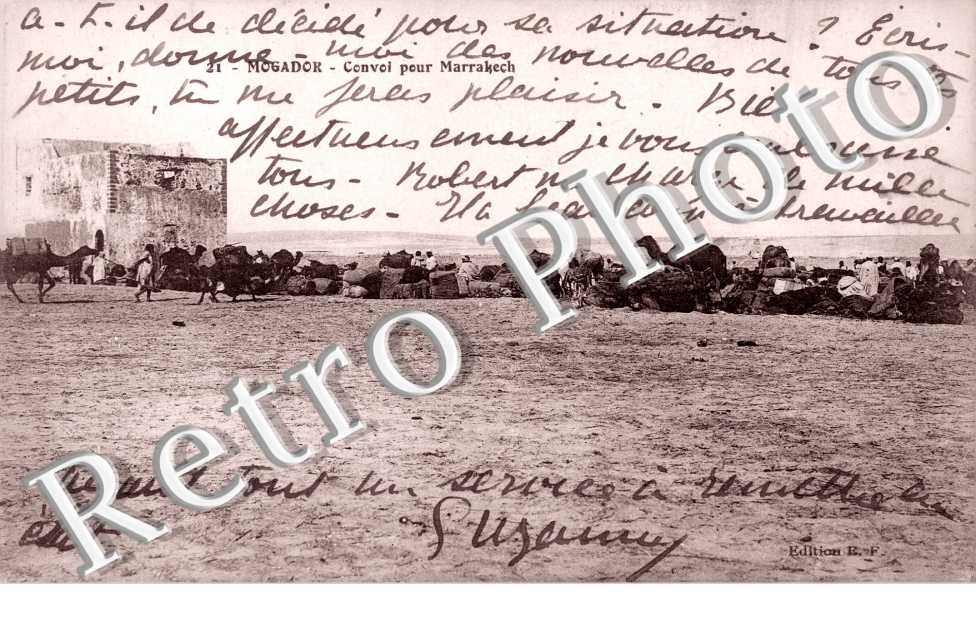 a-t-il de décidé pour sa situation ? Écris-
moi, donne-moi des nouvelles de tous
21 - MOGADOR - Convoi pour Marrakech
petits, tu me feras plaisir. Bien
affectueusement je vous
tous - Robert de mille
choses - Il a à travailler
Retro Photo
Ayant tout un service à remettre en
état
Suzanne
Edition R. F.